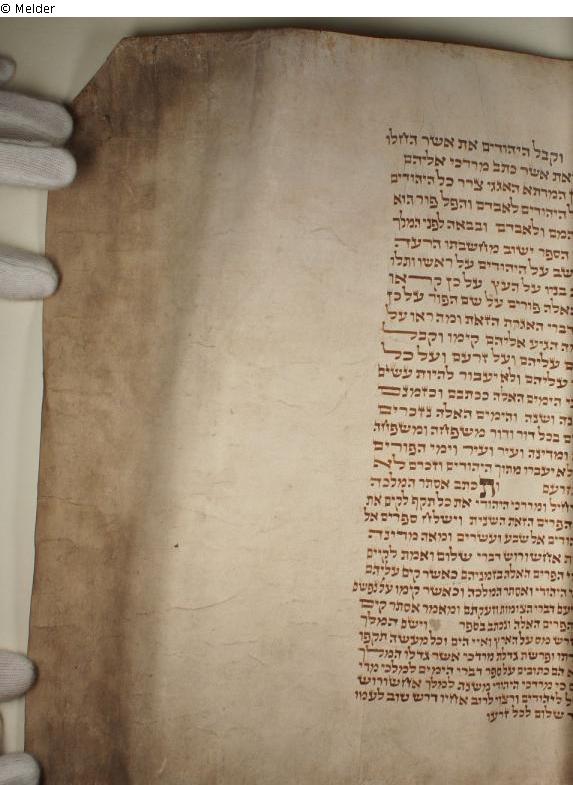 © Melder
וקבל היהודים את אשר החלו
ואת אשר כתב מרדכי אליהם
המדתא האגגי צרר כל היהודים
היהודים לאבדם והפל פור הוא
ולאבדם ובבאה לפני המלך
הספר ישוב מחשבתו הרעה
על היהודים על ראשו ותלו
בניו על העץ על כן קראו
האלה פורים על שם הפור על כן
דברי האגרת הזאת ומה ראו על
הגיע אליהם קימו וקבל
עליהם ועל זרעם ועל כל
עליהם ולא יעבור להיות עשים
הימים האלה ככתבם וכזמנם
ושנה והימים האלה נזכרים
בכל דור ודור משפחה ומשפחה
ומדינה ועיר ועיר וימי הפורים
לא יעברו מתוך היהודים וזכרם לא
מזרעם ותכתב אסתר המלכה
ומרדכי היהודי את כל תקף לקים את
הפרים הזאת השנית וישלח ספרים אל
אל שבע ועשרים ומאה מדינה
אחשורוש דברי שלום ואמת לקים
הפרים האלה בזמניהם כאשר קים עליהם
היהודי ואסתר המלכה וכאשר קימו על נפשם
דברי הצומות וזעקתם ומאמר אסתר קים
הפרים האלה ונכתב בספר וישם המלך
מס על הארץ ואיי הים וכל מעשה תקפו
ופרשת גדלת מרדכי אשר גדלו המלך
הם כתובים על ספר דברי הימים למלכי מדי
כי מרדכי היהודי משנה למלך אחשורוש
ליהודים ורצוי לרוב אחיו דרש טוב לעמו
שלום לכל זרעו